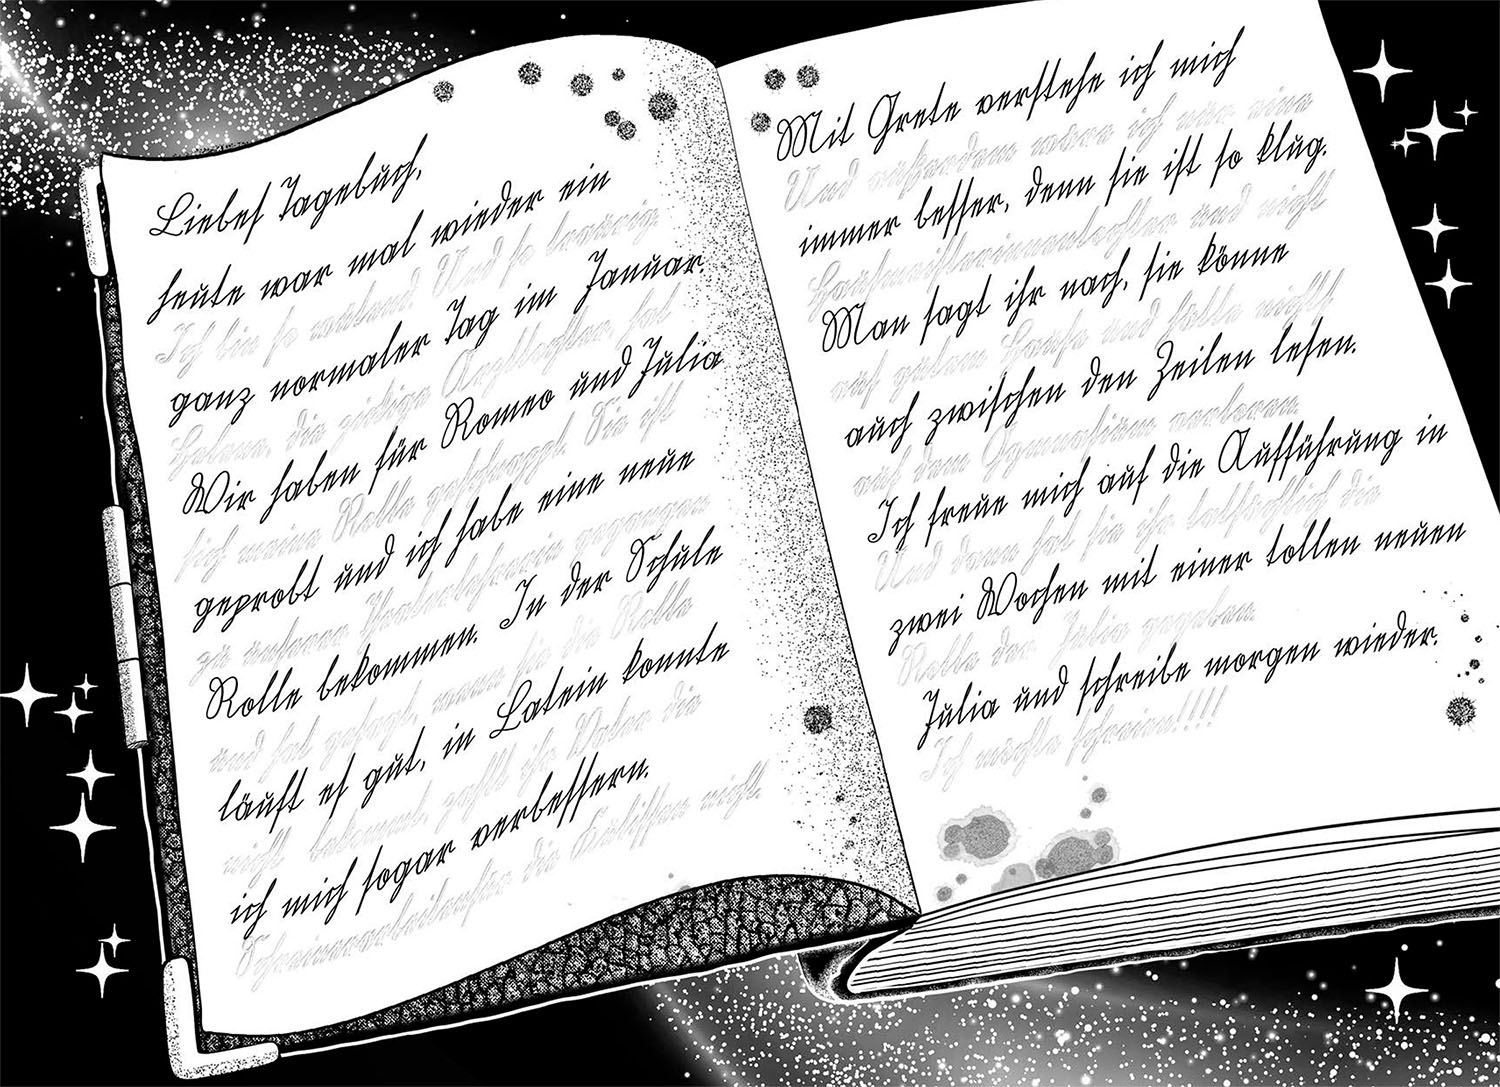 Liebes Tagebuch,
heute war mal wieder ein
Ich bin so wütend. Und so traurig.
ganz normaler Tag im Januar.
Helene, die zickige Arzttochter, hat
Wir haben für Romeo und Julia
sich meine Rolle geschnappt. Sie ist
geprobt und ich habe eine neue
zu unserer Theaterlehrerin gegangen
Rolle bekommen. In der Schule
und hat gesagt, wenn sie die Rolle
läuft es gut, in Latein konnte
nicht bekommt, zahlt ihr Vater die
ich mich sogar verbessern.
Schreinerarbeiten für die Kulissen nicht.
Mit Grete verstehe ich mich
Und außerdem wäre ich nur eine
immer besser, denn sie ist so klug.
Hausmeisterinnentochter und nicht
Man sagt ihr nach, sie könne
aus gutem Hause und hätte nichts
auch zwischen den Zeilen lesen.
auf dem Gymnasium verloren.
Ich freue mich auf die Aufführung in
Und dann hat sie ihr tatsächlich die
zwei Wochen mit einer tollen neuen
Rolle der Julia gegeben.
Julia und schreibe morgen wieder.
Ich möchte schreien!!!!